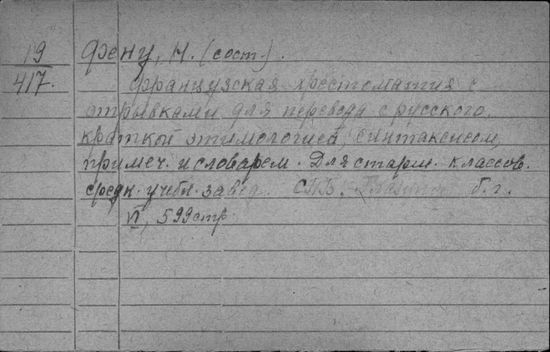 19 Фену, Н. (сост.).
417. Французская хрестоматия с
отрывками для перевода с русского,
краткой этимологией, синтаксисом,
примеч. и словарем. Для старш. классов.
средн. учебн. завед. СПБ, б. г.
VI, 599 стр